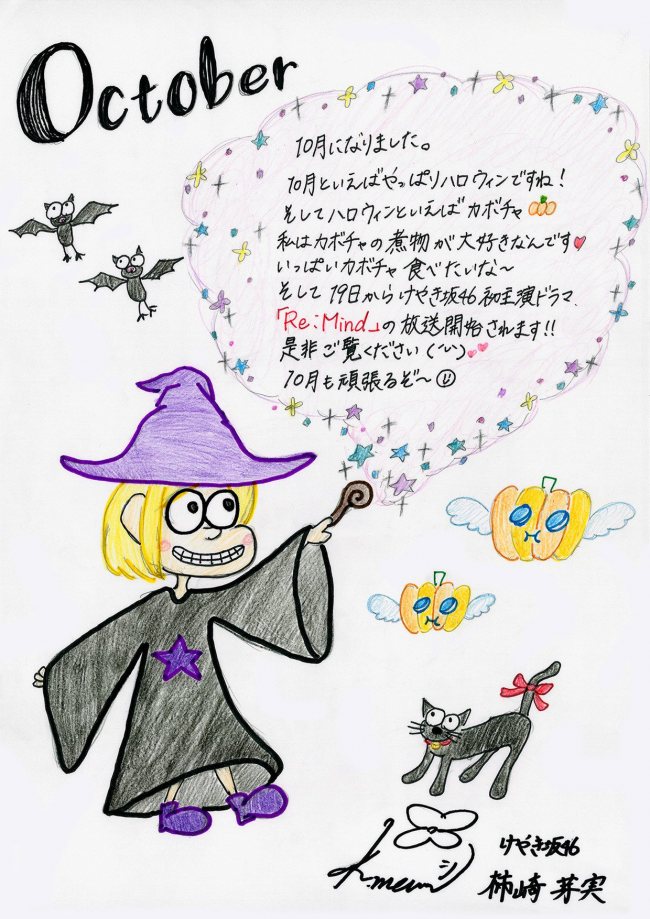 October
10月になりました。
10月といえばやっぱりハロウィンですね!
そしてハロウィンといえばカボチャ
私はカボチャの煮物が大好きなんです♥
いっぱいカボチャ食べたいな〜
そして19日からけやき坂46初主演ドラマ、
「Re:Mind」の放送開始されます!!
是非ご覧ください(^^)
10月も頑張るぞ〜
けやき坂46
柿崎芽実